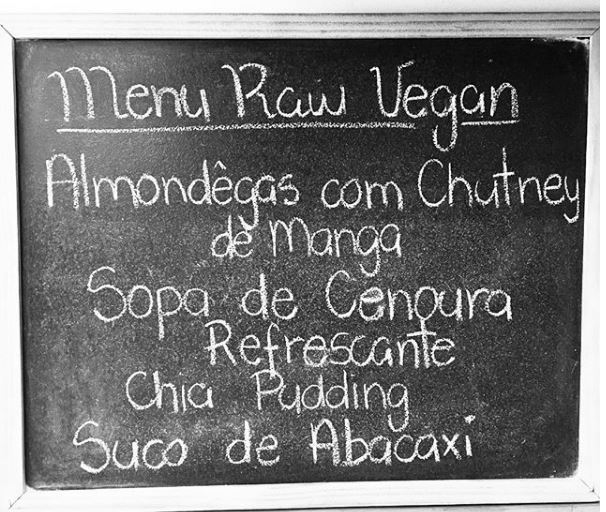 Menu Raw Vegan
Almondêgas com Chutney
de Manga
Sopa de Cenoura
Refrescante
Chia Pudding
Suco de Abacaxi